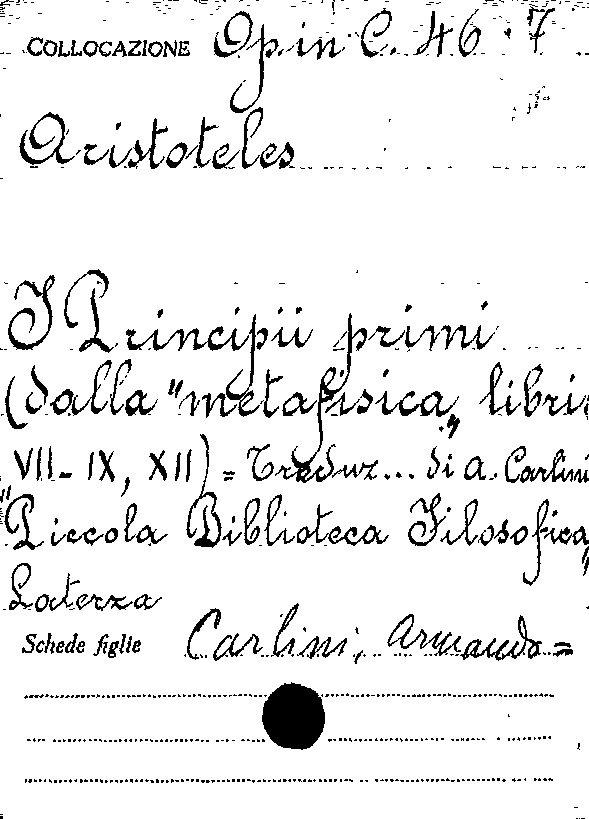 COLLOCAZIONE Op. in C. 46 · 7
Aristoteles
I Principii primi
(dalla "metafisica„ libri
VII-IX, XII) = Traduz... di A. Carlini
"Piccola Biblioteca Filosofica„
Laterza
Schede figlie Carlini, Armando =